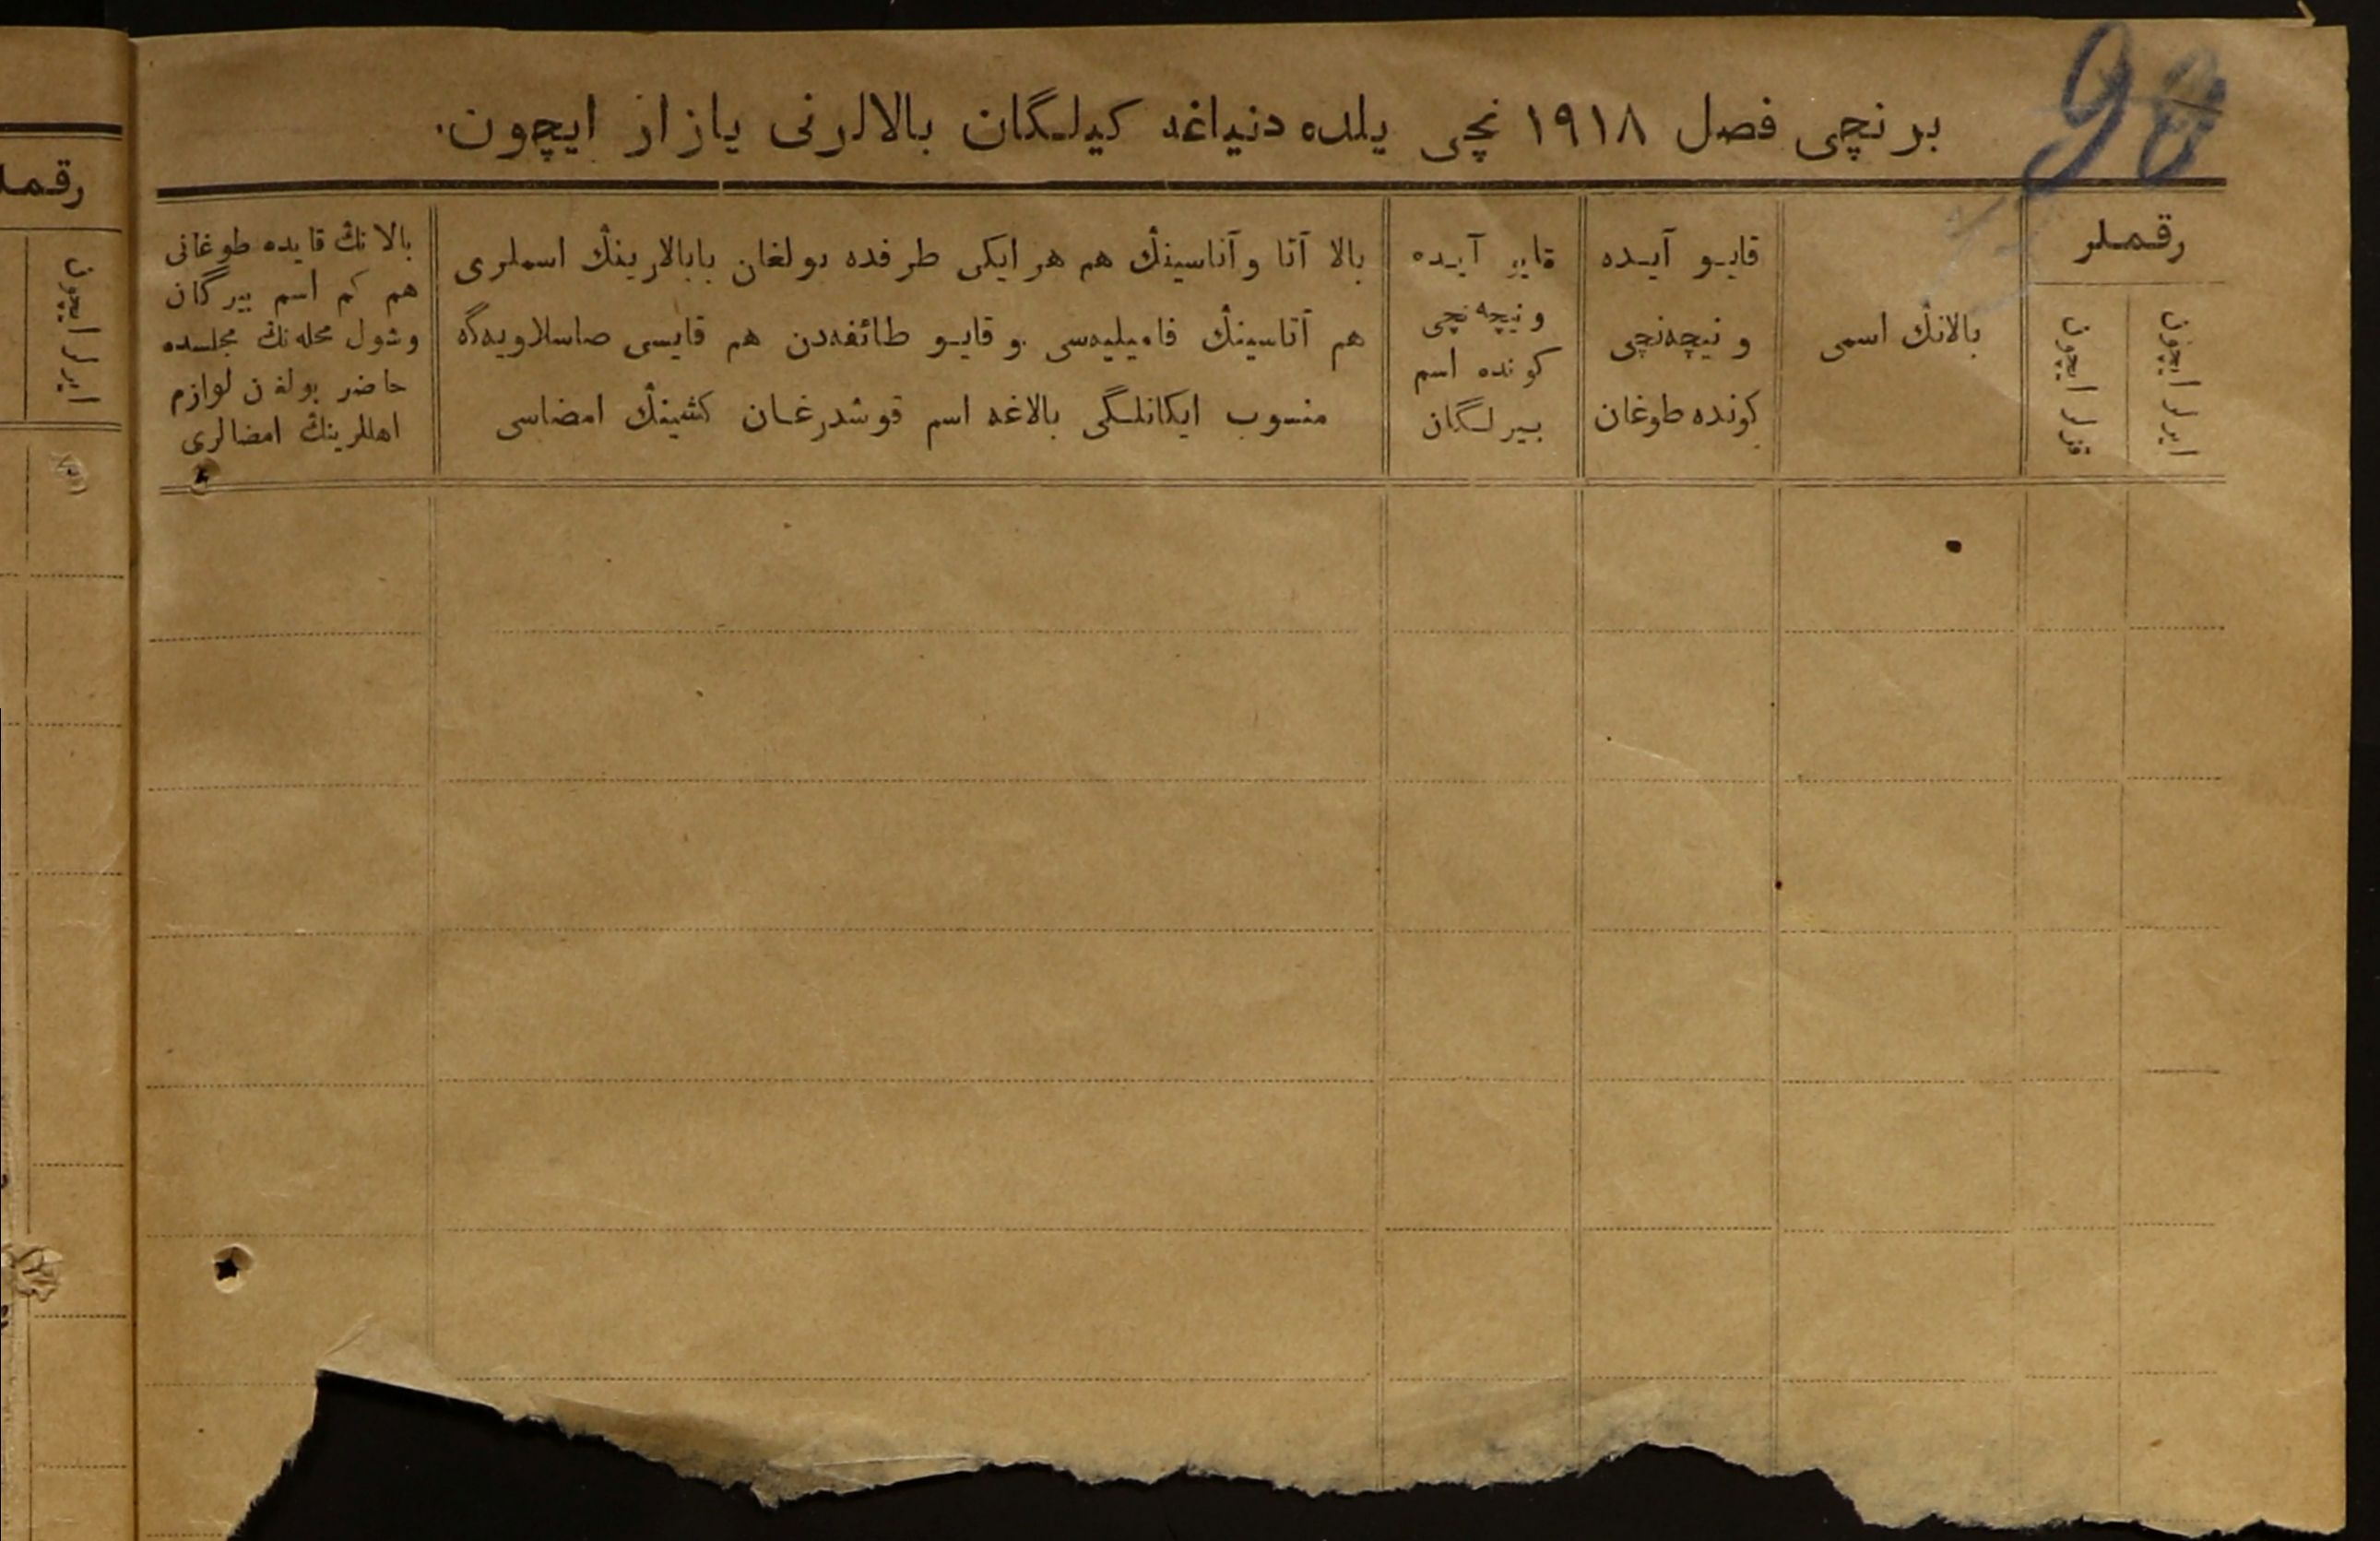 98
برنچی فصل ١٩١٨ نچی یلده دنیاغه كیلگان بالالرنی یازار ایچون.
رقملر
ایرلر ایچون
قزلر ایچون
بالانڭ اسمی
قایـو آیـده
و نیچه‌نچی
كونده طوغان
قایو آیـده
و نیچه نچی
كونده اسم
بیرلگان
بالا آتا و آناسینڭ هم هر ایكی طرفده بولغان بابالارینڭ اسملری
هم آتاسینڭ فامیلیه‌سی و قایـو طائفه‌دن هم قایسی صاسلاویه‌گه
منسوب ایكانلگی بالاغه اسم قوشدرغـان كشینڭ امضاسی
بالا نڭ قایده طوغانی
هم كم اسم بیرگان
وشول محله نڭ مجلسده
حاضر بولغن لوازم
اهللرینڭ امضالری
رقملر
ایرلر ایچون